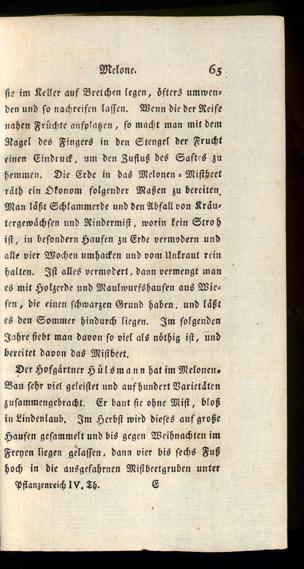 Melone. 65
sie im Keller auf Bretchen legen, öfters umwen-
den und so nachreifen lassen. Wenn die der Reife
nahen Früchte aufplatzen, so macht man mit dem
Nagel des Fingers in den Stengel der Frucht
einen Eindruck, um den Zufluß des Saftes zu
hemmen. Die Erde in das Melonen-Mistbeet
räth ein Ökonom folgender Maßen zu bereiten.
Man läßt Schlammerde und den Abfall von Kräu-
tergewächsen und Rindermist, worin kein Stroh
ist, in besondern Haufen zu Erde vermodern und
alle vier Wochen umhacken und vom Unkraut rein
halten. Ist alles vermodert, dann vermengt man
es mit Holzerde und Maulwurfshaufen aus Wie-
sen, die einen schwarzen Grund haben, und läßt
es den Sommer hindurch liegen. Im folgenden
Jahre siebt man davon so viel als nöthig ist, und
bereitet davon das Mistbeet.
Der Hofgärtner Hülsmann hat im Melonen-
Bau sehr viel geleistet und auf hundert Varietäten
zusammengebracht. Er baut sie ohne Mist, bloß
in Lindenlaub. Im Herbst wird dieses auf große
Haufen gesammelt und bis gegen Weihnachten im
Freyen liegen gelassen, dann vier bis sechs Fuß
hoch in die ausgefahrnen Mistbeetgruben unter
Pflanzenreich IV. Th. E